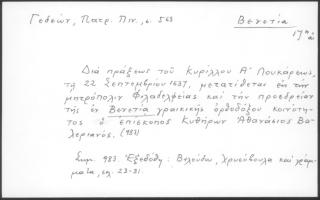 Γεδεών, Πατρ. Πιν., σ. 563
Βενετία
17ος αἰ
Διὰ πράξεως τοῦ Κυρίλλου Α' Λουκάρεως,
τῇ 22 Σεπτεμβρίου 1637, μετατίθεται ἐν τὴν
μητρόπολιν Φιλαδελφείας καὶ τὴν προεδρείαν
τῆς ἐν Βενετία γραικικῆς ὀρθοδόξου κοινότη-
τος ὁ ἐπίσκοπος Κυθήρων Ἀθανάσιος Βα-
λεριανός. (983)
Σημ. 983. Ἐξεδόθη: Βελούδω, Χρυσόβουλα καὶ γράμ-
ματα, σσ. 23-31.